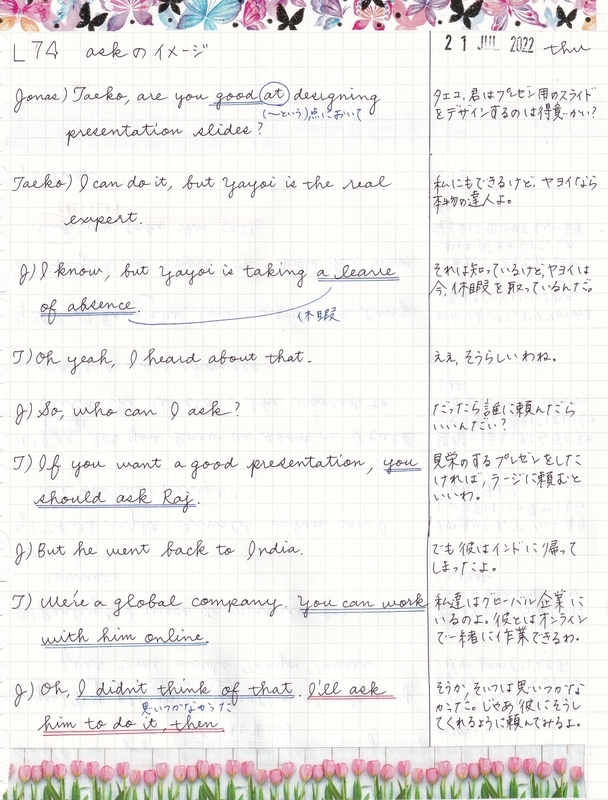 L74 askのイメージ
21 JUL 2022 thu
Jonas) Taeko, are you good at designing
(〜という)点において
presentation slides?
タエコ、君はプレゼン用のスライド
をデザインするのは得意かい?
Taeko) I can do it, but Yayoi is the real
expert.
私にもできるけど、ヤヨイなら
本物の達人よ。
J) I know, but Yayoi is taking a leave
of absence.
休暇
それは知っているけど、ヤヨイは
今、休暇を取っているんだ。
T) Oh yeah, I heard about that.
ええ、そうらしいわね。
J) So, who can I ask?
だったら誰に頼んだら
いいんだい?
T) If you want a good presentation, you
should ask Raj.
見栄のするプレゼンをした
ければ、ラージに頼むと
いいわ。
J) But he went back to India.
でも彼はインドに帰って
しまったよ。
T) We're a global company. You can work
with him online.
私達はグローバル企業に
いるのよ。彼とはオンライン
で一緒に作業できるわ。
J) Oh, I didn't think of that. I'll ask
思いつかなかった
him to do it, then.
そうか、そいつは思いつかな
かった。じゃあ、彼にそうし
てくれるように頼んでみるよ。